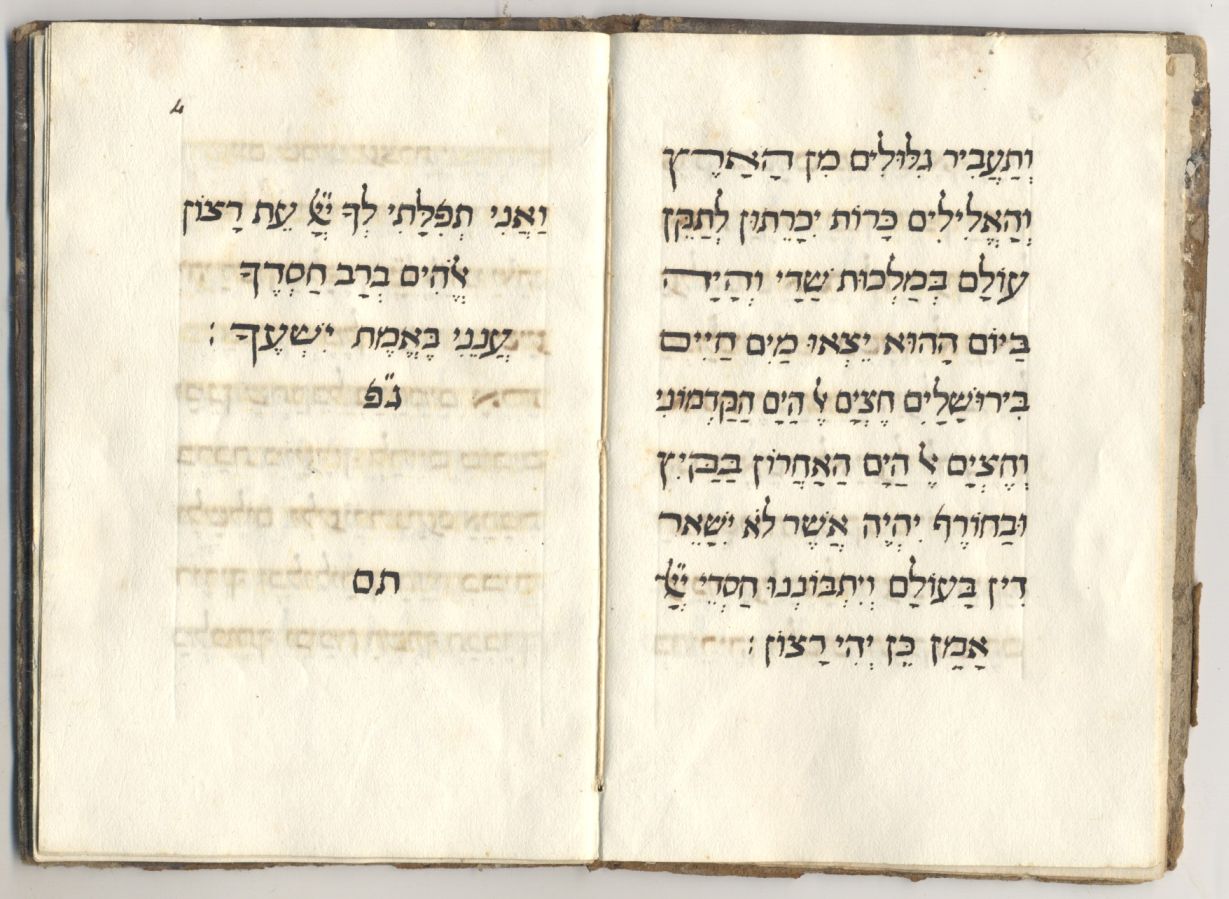 וְתַעֲבִיר גִלּוּלִים מִן הָאָרֶץ
וְהָאֱלִילִים כָּרוֹת יִכָּרֵתוּן לְתַקֵּן
עוֹלָם בְּמַלְכוּת שַׁדַי וְהָיָה
בַּיּוֹם הַהוּא יֵצְאוּ מַיִם חַיִּים
בִּירוּשָׁלַיִם חֶצְיָם אֶל הַיָּם הַקַּדְמוֹנִי
וְחֶצְיָם אֶל הַיָּם הַאַחֲרוֹן בַּקַיִץ
וּבַחוֹרֶף יִהְיֶה אֲשֶׁר לֹא יִשָׁאֵר
דִין בָּעוֹלָם וְיִתְבּוֹנְנוּ חַסְדֵי יְיָ
אָמֵן כֵּן יְהִי רָצוֹן :
4
וַאֲנִי תְפִלָּתִי לְךָ יְיָ עֵת רָצוֹן
אֱלֹהִים בְּרָב חַסְדֶךָ
עֲנֵנִי בֶּאֱמֶת יִשְׁעֶךָ :
ג״פ
תם